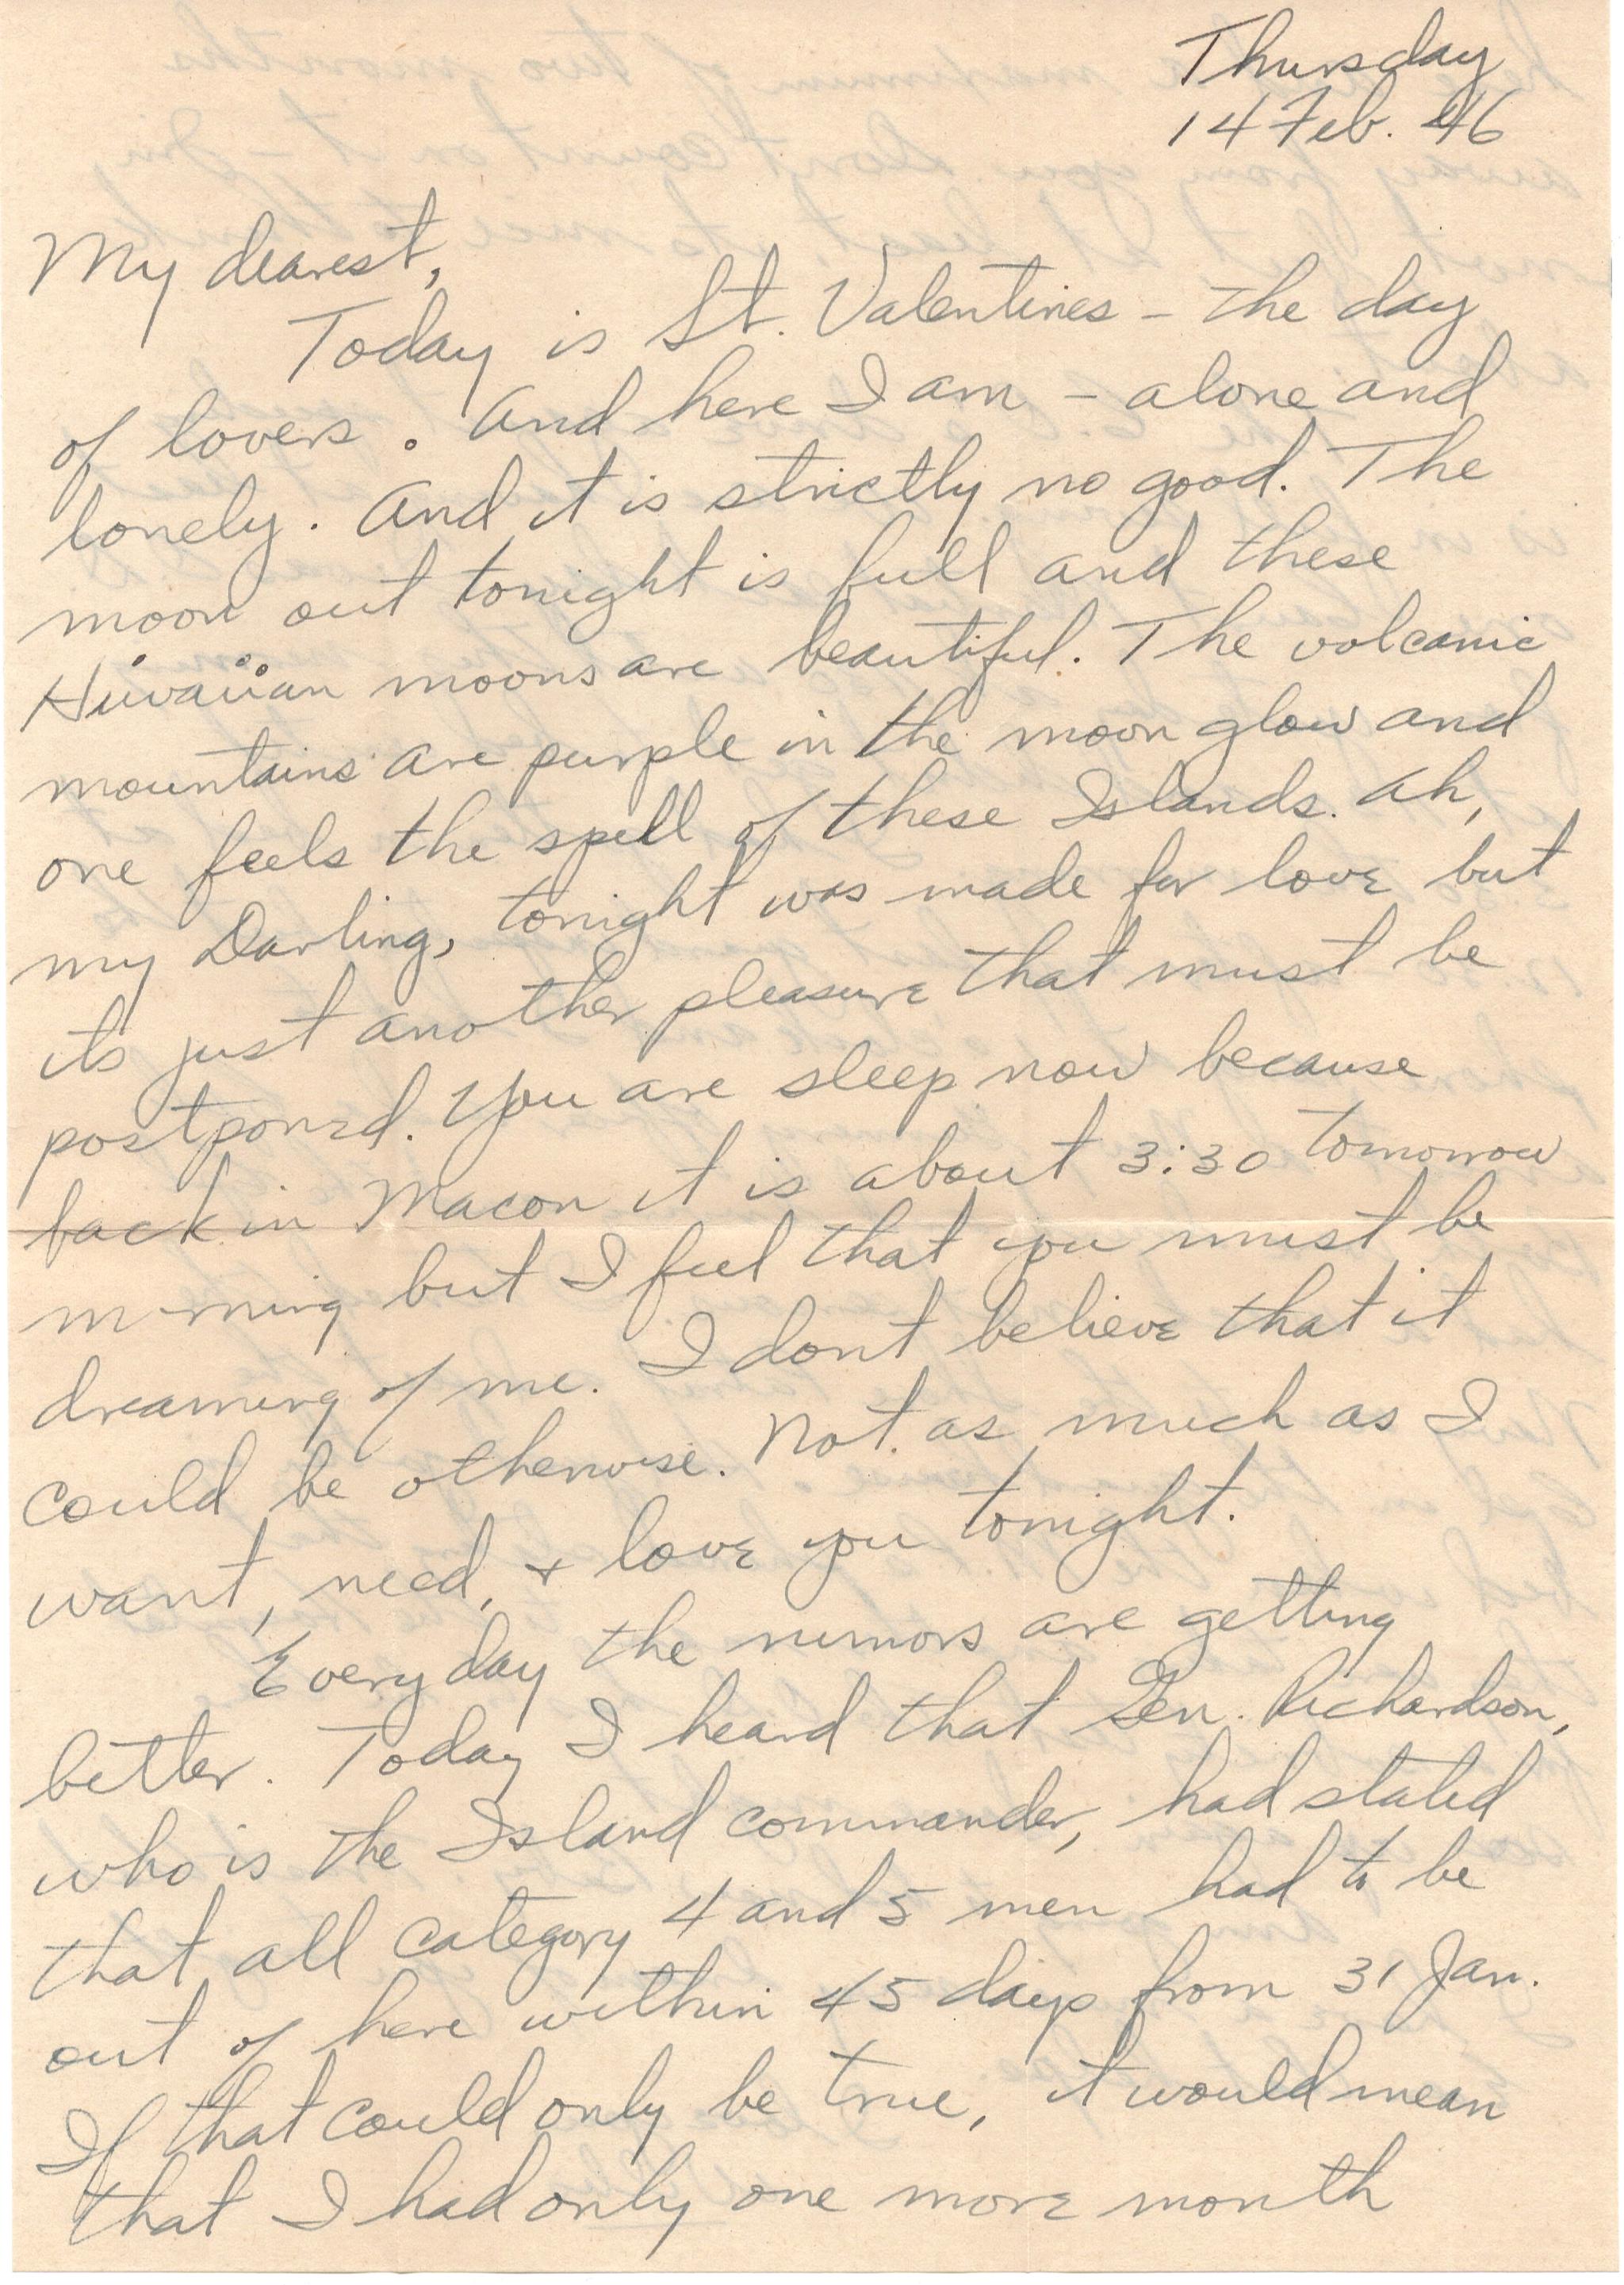 Thursday
14 Feb. 46
My dearest,
Today is St. Valentines - the day
of lovers. And here I am - alone and
lonely. And it is strictly no good. The
moon out tonight is full and these
Hiwaiian moons are beautiful. The volcanic
mountains are purple in the moon glow and
one feels the spell of these Islands. Ah,
my Darling, tonight was made for love but
its just another pleasure that must be
postponed. You are sleep now because
back in Macon it is about 3:30 tomorrow
morning but I feel that you must be
dreaming of me. I dont believe that it
could be otherwise. Not as much as I
want, need, + love you tonight.
Everyday the rumors are getting
better. Today I heard that Gen. Richardson,
who is the Island commander, had stated
that all category 4 and 5 men had to be
out of here within 45 days from 31 Jan.
If that could only be true, it would mean
that I had only one more month